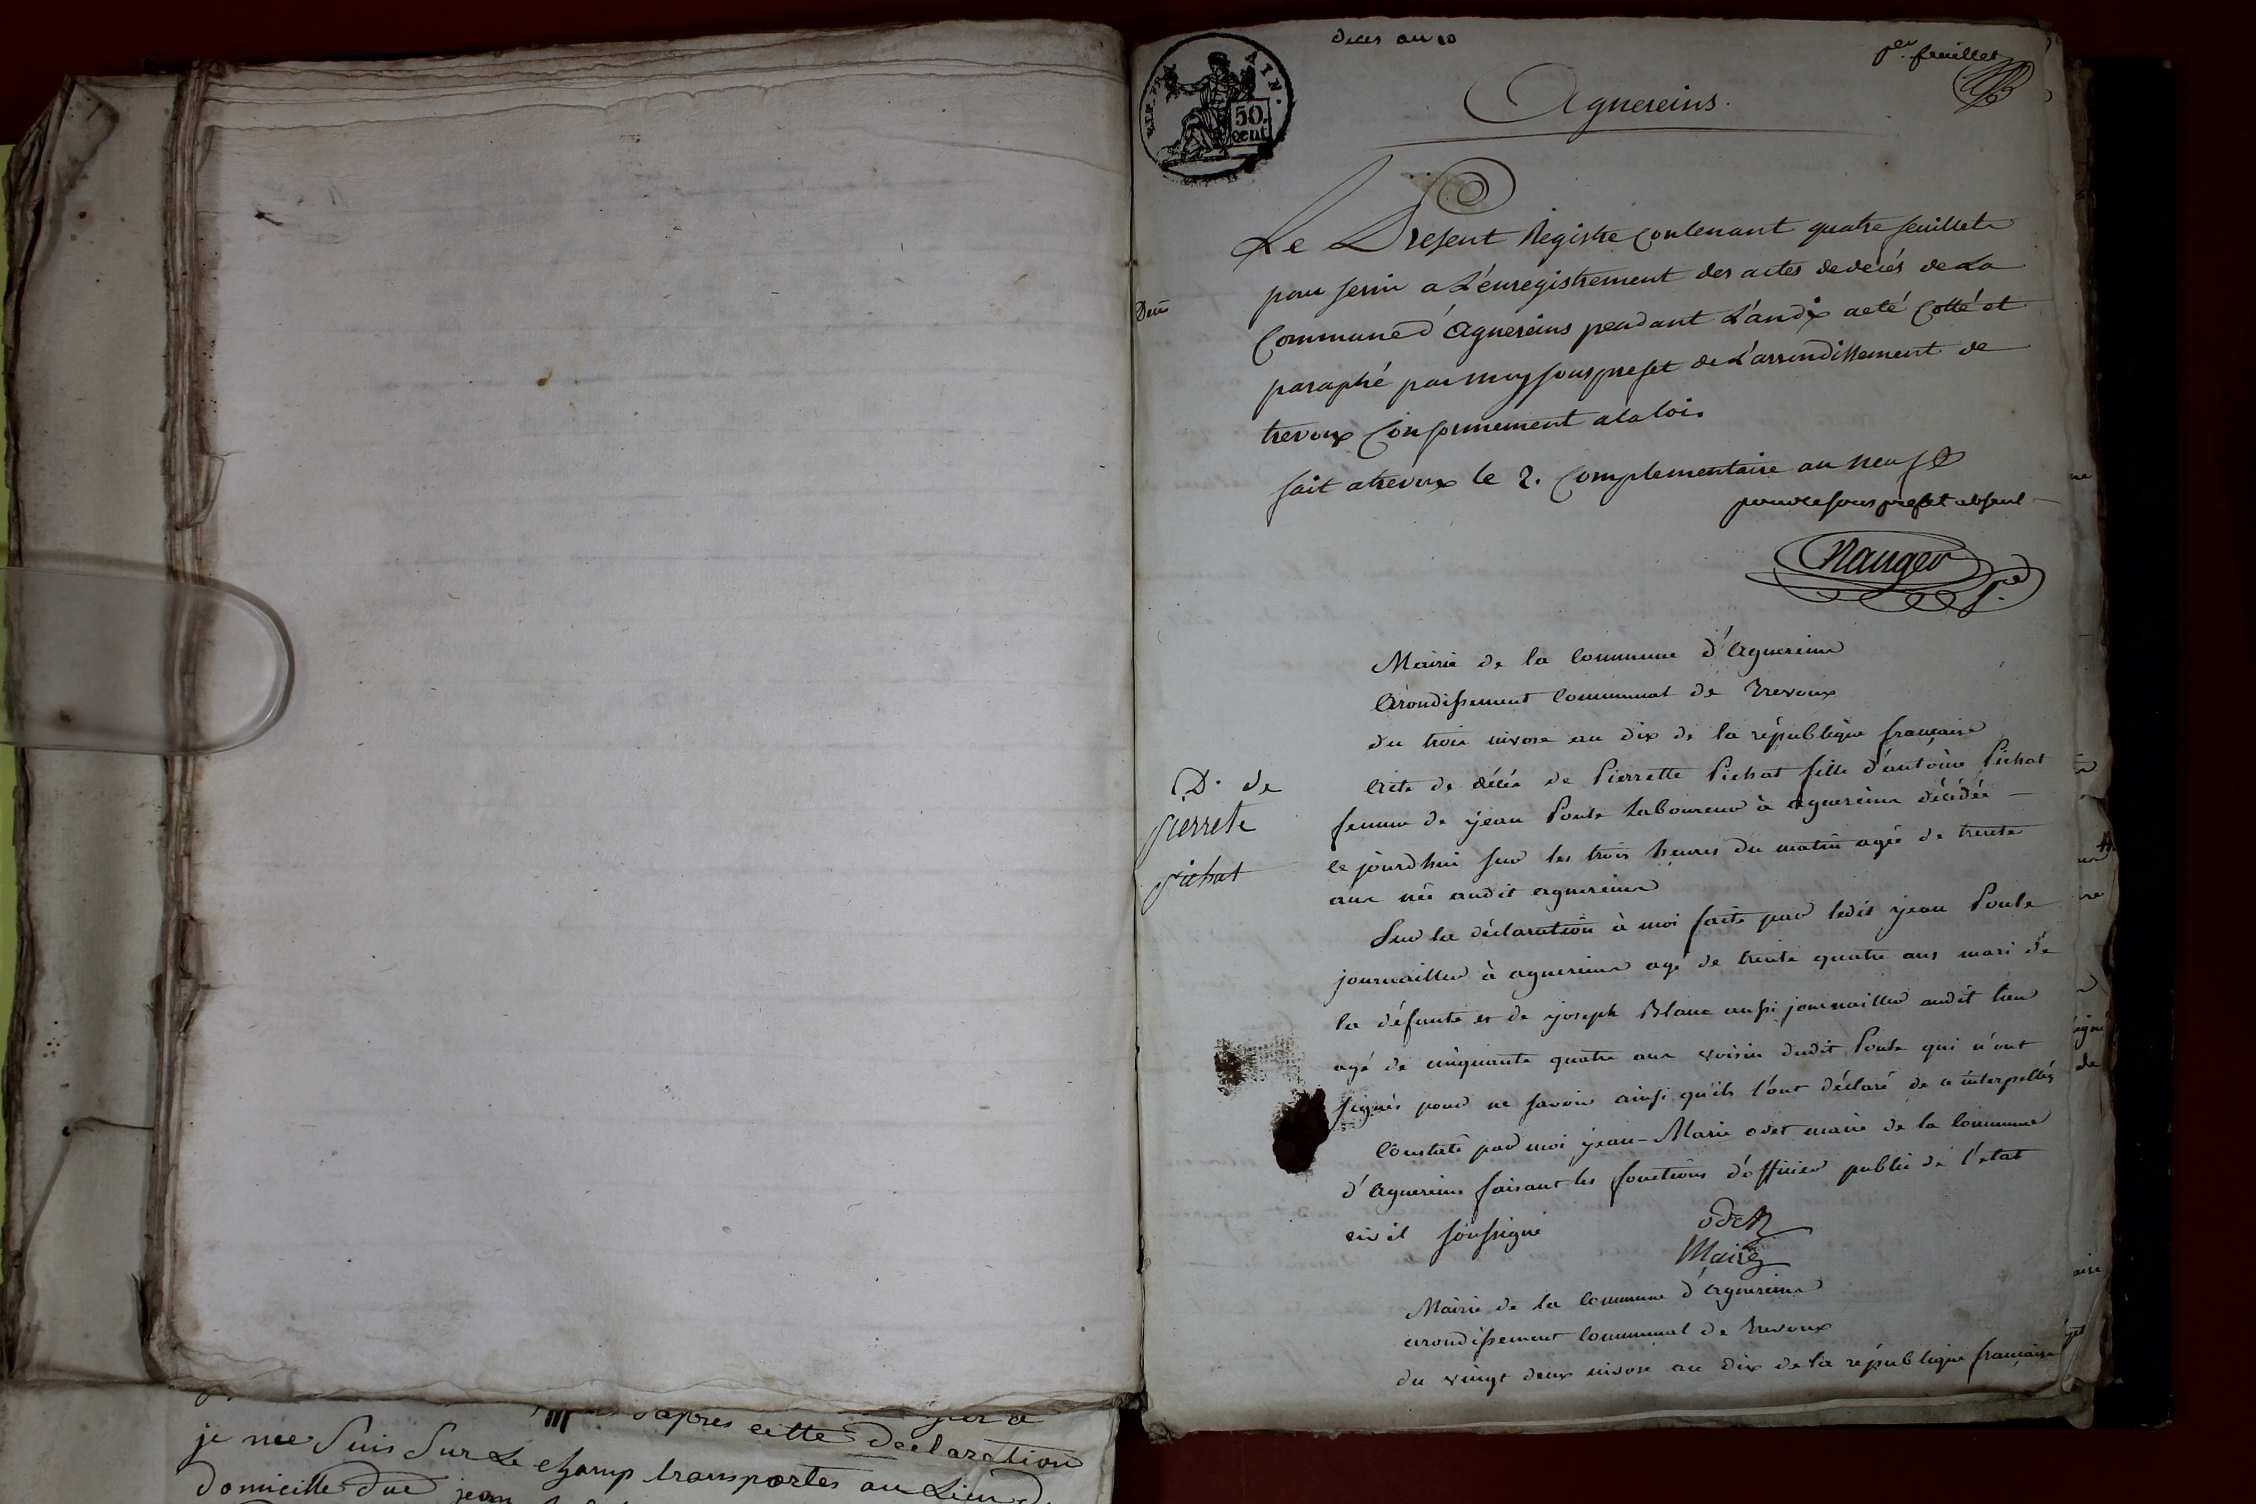 deces an 10
per feuillet
AIN.
50.
cent
Agnereins.
Le Present Registre Contenant quatre feuillets
pour servir a L'enregistrement des actes de decés de La
Commune d'Agnereins pendant L'an dix a eté Cotté et
paraphé par nous sous prefet de L'arrondissement de
trevoux Conformement a la loi.
fait a trevoux le 2. Complementaire an neuf
pour le sous prefet absent
Nauger
Mairie de la Commune d'Agnereins
Arondissement Communal de Trevoux
du trois nivose an dix de la république française
D. de
Pierrete
pichat
Acte de décés de Pierrette Pichat fille d'antoine Pichat
femme de jean Ponte Laboureur à agnereins décédée
ce jourdhui sur les trois heures du matin agée de trente
ans née audit agnereins
Sur la déclaration à moi faite par ledit jean Ponte
journaillier à agnereins agé de trente quatre ans mari de
la défunte et de joseph Blanc aussi journaillier audit lieu
agé de cinquante quatre ans voisin dudit Ponte qui n'ont
signés pour ne savoir ainsi qu'ils l'ont déclaré de ce interpellés
Constaté par moi jean-Marie odet maire de la Commune
d'Agnereins faisant les fonctions d'officier public de l'etat
civil soussigné
odet
Maire
Mairie de la Commune d'Agnereins
arondissement Communal de Trevoux
du vingt deux nivose an dix de la république française
d'apres cette declaration
je me suis sur Le champ transportes au Lieu
domicille du jean